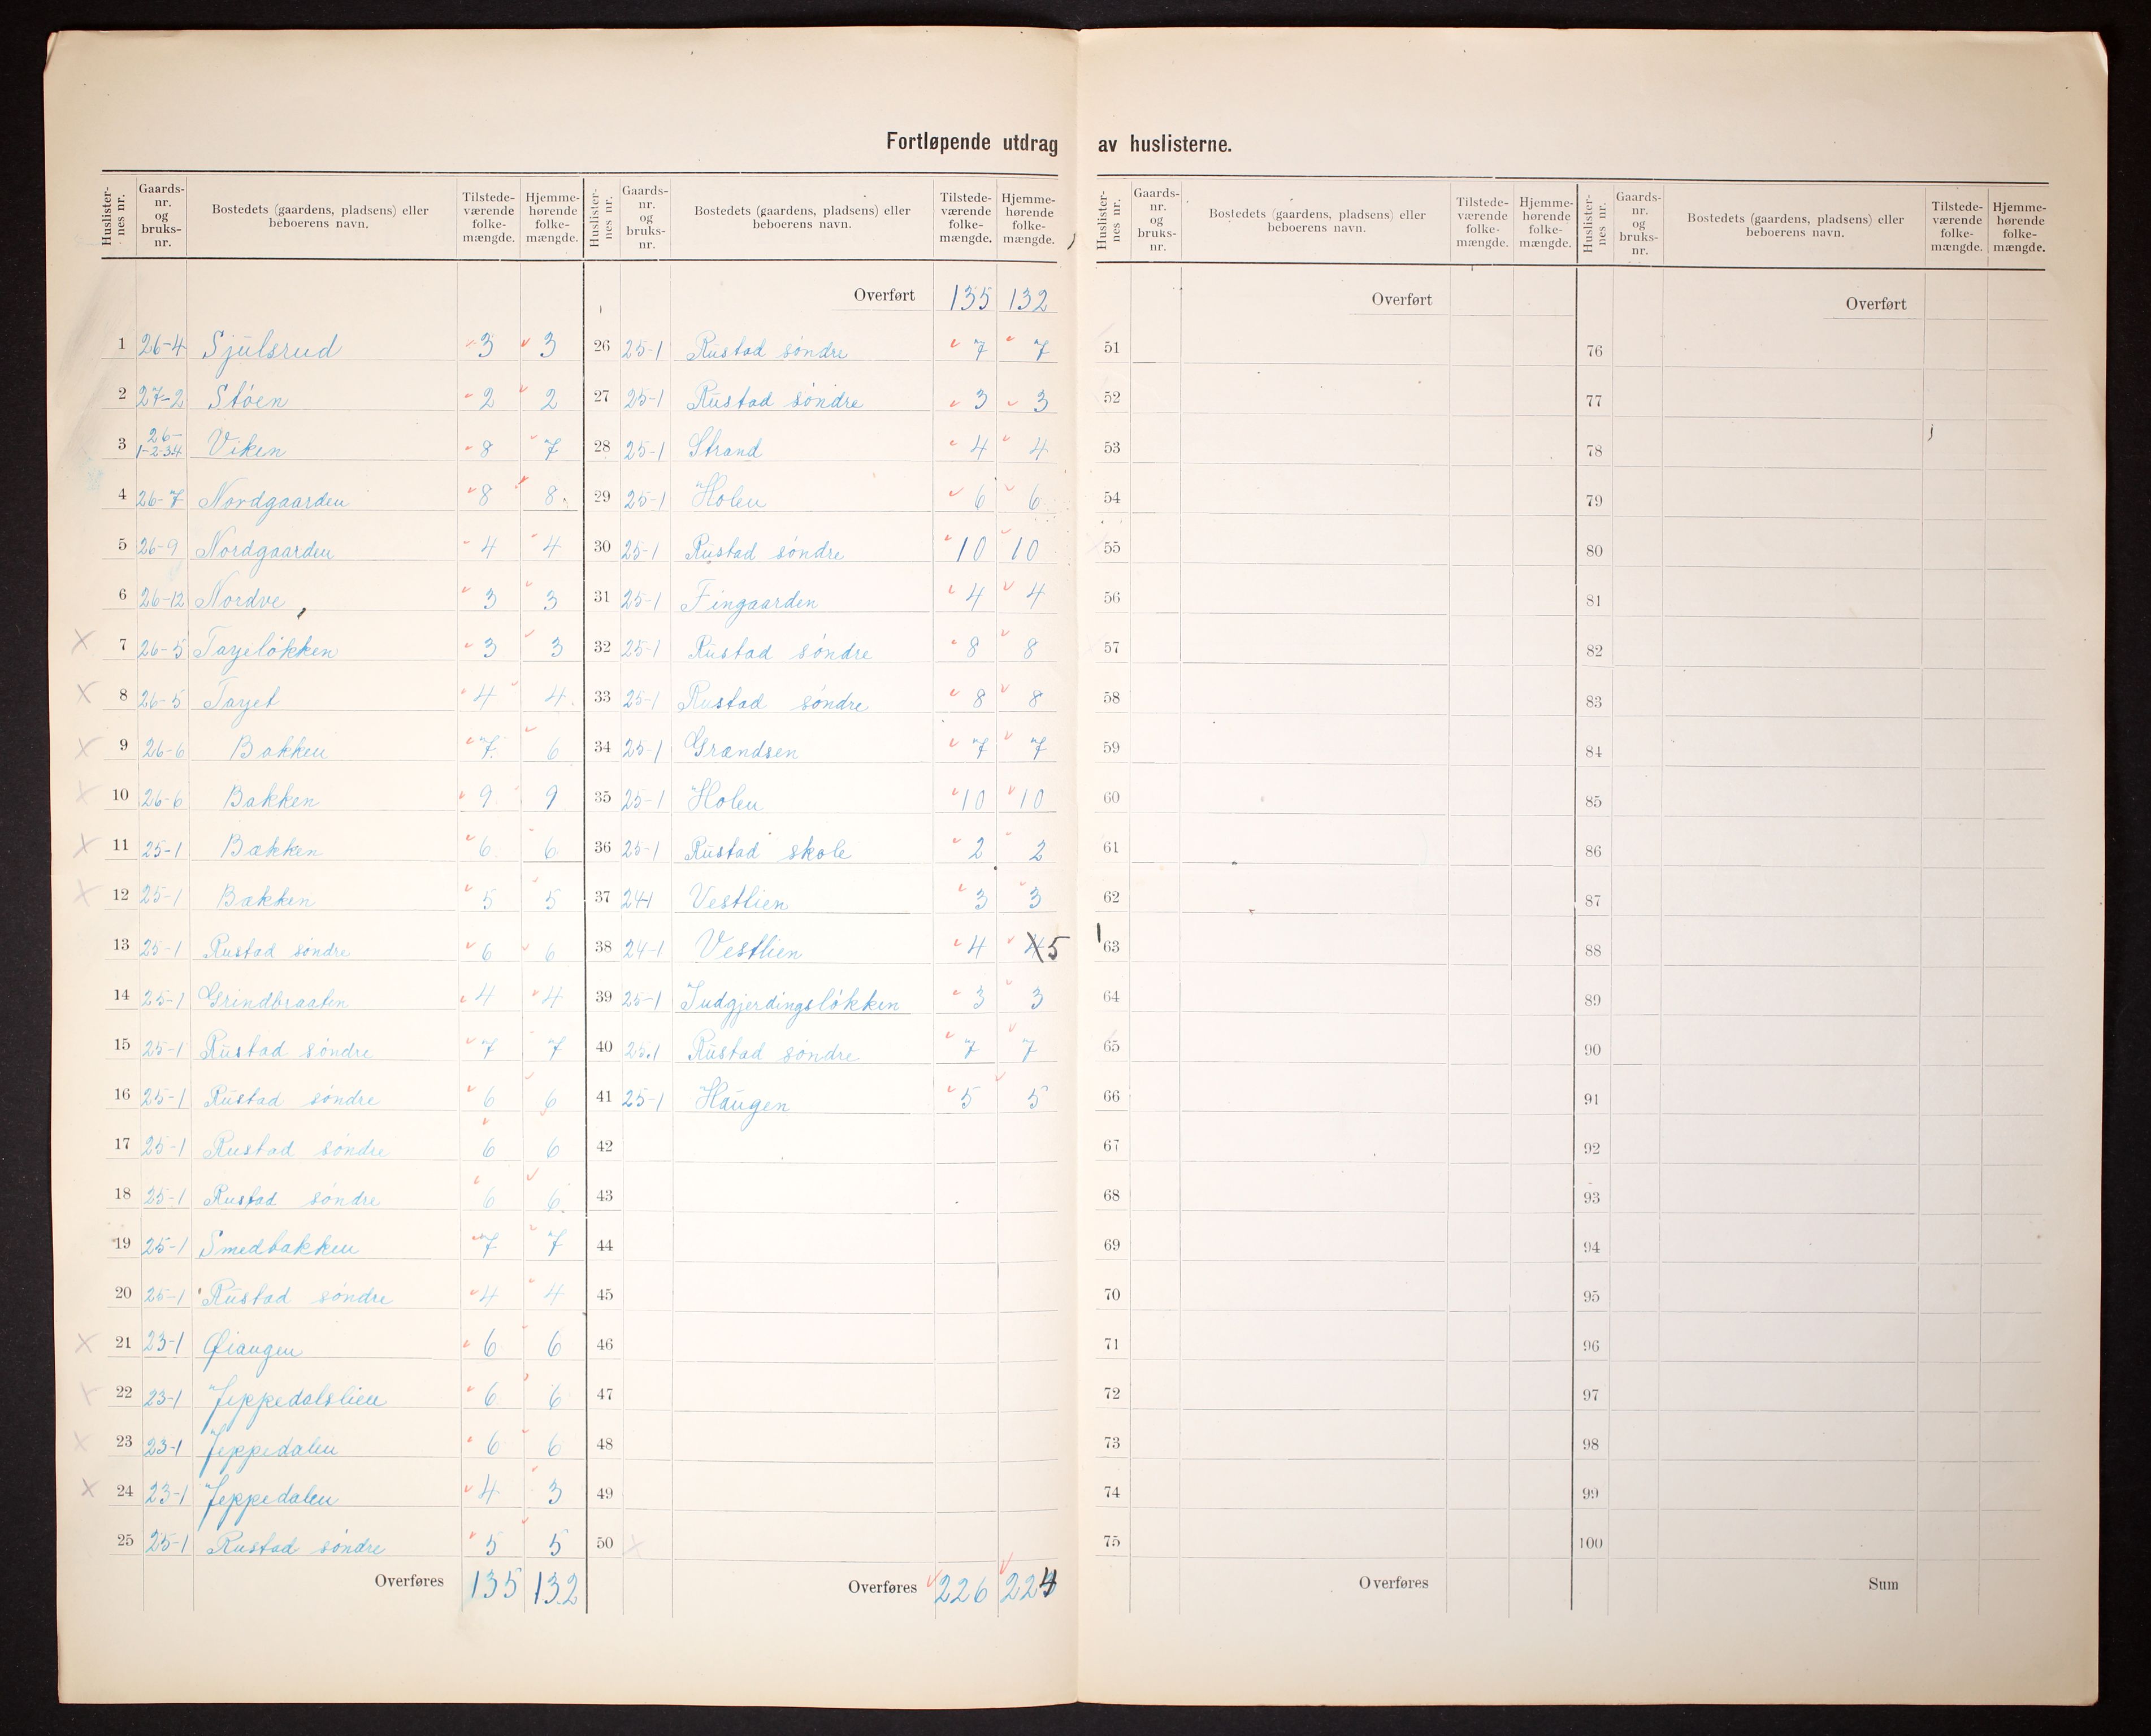 Fortløpende utdrag av huslisterne.
Huslister-nes nr. Gaards-nr. og bruks-nr. Bostedets (gaardens, pladsens) eller beboerens navn. Tilstede-værende folke-mængde. Hjemme-hørende folke-mængde.
1 26-4 Sjulsrud 3 3
2 27-2 Støen 2 2
3 26-1-2-34 Viken 8 7
4 26-7 Nordgaarden 8 8
5 26-9 Nordgaarden 4 4
6 26-12 Nordve 3 3
7 26-5 Tajeløkken 3 3
8 26-5 Tajet 4 4
9 26-6 Bakken 7 6
10 26-6 Bakken 9 9
11 25-1 Bakken 6 6
12 25-1 Bakken 5 5
13 25-1 Rustad søndre 6 6
14 25-1 Grindbraaten 4 4
15 25-1 Rustad søndre 7 7
16 25-1 Rustad søndre 6 6
17 25-1 Rustad søndre 6 6
18 25-1 Rustad søndre 6 6
19 25-1 Smedbakken 7 7
20 25-1 Rustad søndre 4 4
21 23-1 Øiangen 6 6
22 23-1 Jeppedalslien 6 6
23 23-1 Jeppedalen 6 6
24 23-1 Jeppedalen 4 3
25 25-1 Rustad søndre 5 5
Overføres 135 132
Huslister-nes nr. Gaards-nr. og bruks-nr. Bostedets (gaardens, pladsens) eller beboerens navn. Tilstede-værende folke-mængde. Hjemme-hørende folke-mængde.
Overført 135 132
26 25-1 Rustad søndre 7 7
27 25-1 Rustad søndre 3 3
28 25-1 Strand 4 4
29 25-1 Holen 6 6
30 25-1 Rustad søndre 10 10
31 25-1 Fingaarden 4 4
32 25-1 Rustad søndre 8 8
33 25-1 Rustad søndre 8 8
34 25-1 Grændsen 7 7
35 25-1 Holen 10 10
36 25-1 Rustad skole 2 2
37 24-1 Vestlien 3 3
38 24-1 Vestlien 4 4 5
39 25-1 Indgjerdingsløkken 3 3
40 25.1 Rustad søndre 7 7
41 25-1 Haugen 5 5
42
43
44
45
46
47
48
49
50
Overføres 226 224
Huslister-nes nr. Gaards-nr. og bruks-nr. Bostedets (gaardens, pladsens) eller beboerens navn. Tilstede-værende folke-mængde. Hjemme-hørende folke-mængde.
Overført
51
52
53
54
55
56
57
58
59
60
61
62
63
64
65
66
67
68
69
70
71
72
73
74
75
Overføres
Huslister-nes nr. Gaards-nr. og bruks-nr. Bostedets (gaardens, pladsens) eller beboerens navn. Tilstede-værende folke-mængde. Hjemme-hørende folke-mængde.
Overført
76
77
78
79
80
81
82
83
84
85
86
87
88
89
90
91
92
93
94
95
96
97
98
99
100
Sum